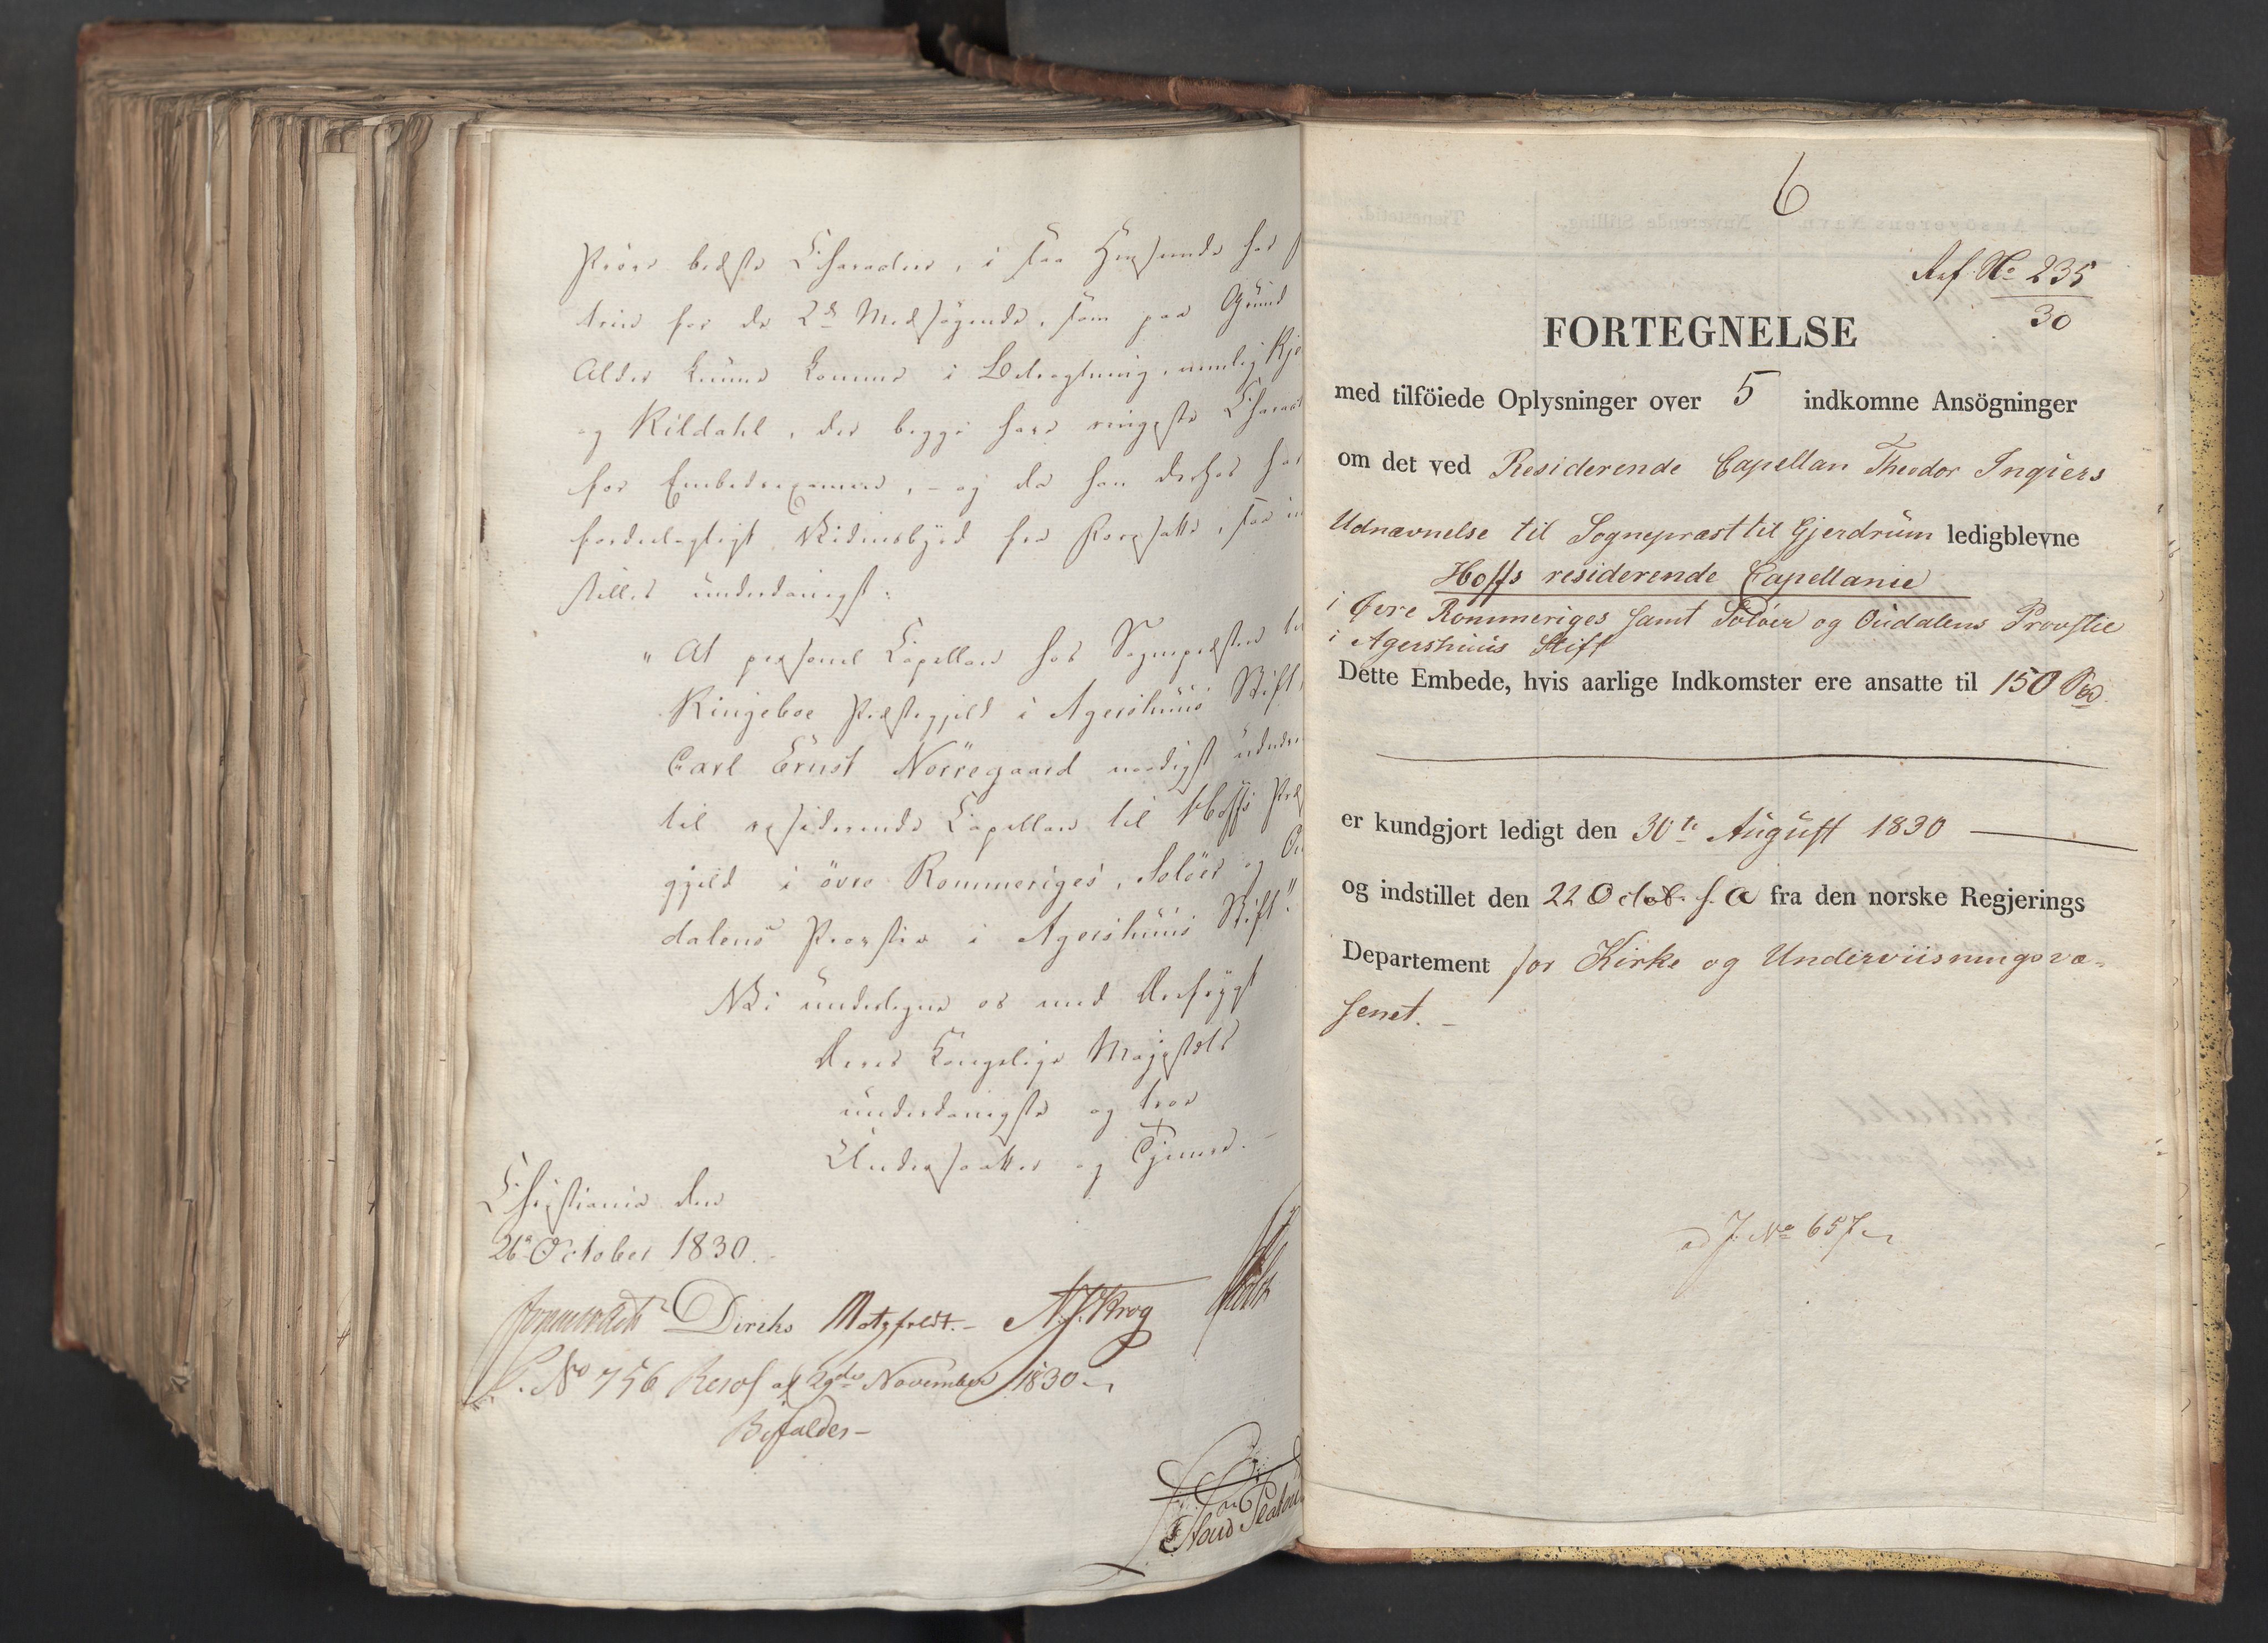 Prøve bedste Characteer, i saa Henseende har
trin for de 2de Medsøgende, som paa Grund
Alder kunne komme i Betragtning, nemlig
og Kildahl, der begge have ringeste
for Embedsexamen, - og da han derhos
fordeelagtigt Vidnesbyrd fra Foresatte, saa
stilles underdanigst:
"At personel Capellan hos Sognepræsten
Ringeboe Præstegjeld i Agershuus Stift
Carl Ernst Nörregaard naadigst
til residerende Capellan til Hoffs
gjeld i övre Rommeriges, Solöer og
dalens Provstie i Agershuus Stift."
Vi undertegne os med Ærefrygt
Deres Kongelige Majestæts
underdanigste og troe
Undersaatter og Tjenere. -
Christiania den
26de October 1830.
Diriks Motzfeldt. - N. J. Krog Holst
No 756 Resol af 29de November 1830
Bifaldes -
6
Ref. No 235
30
FORTEGNELSE
med tilföiede Oplysninger over 5 indkomne Ansögninger
om det ved Residerende Capellan Theodor Ingiers
Udnævnelse til Sognepræst til Gjerdrum ledigblevne
Hoffs residerende Capellanie
i Øvre Rommeriges samt Soløer og Oudalens Provstie
i Agershuus Stift
Dette Embede, hvis aarlige Indkomster ere ansatte til 150 Spd.
er kundgjort ledigt den 30te August 1830
og indstillet den 22 Octob. s. a fra den norske Regjerings
Departement for Kirke og Underviisningsvæ-
senet. -
ad J. No 657